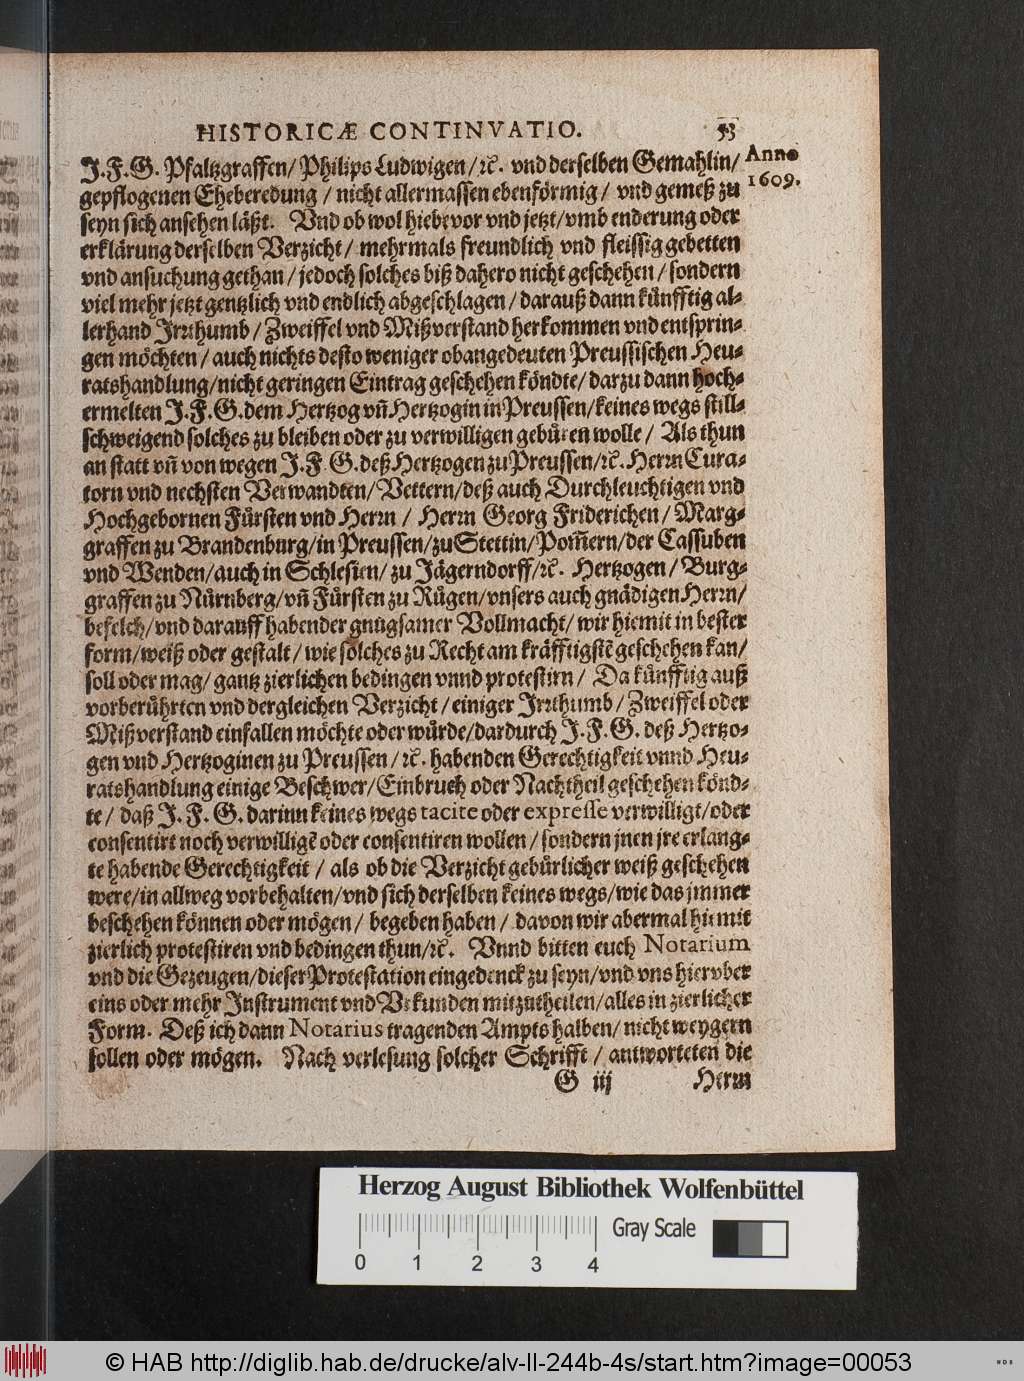 HISTORICÆ CONTINVATIO. 53
Anno
1609.
J.F.G. Pfaltzgraffen/Philips Ludwigen/ꝛc. vnd derselben Gemahlin/
gepflogenen Eheberedung / nicht allermassen ebenförmig/ vnd gemeß zu
seyn sich ansehen läßt. Vnd ob wol hiebevor vnd jetzt/vmb enderung oder
erklärung derselben Verzicht/ mehrmals freundlich vnd fleissig gebetten
vnd ansuchung gethan/jedoch solches biß dahero nicht geschehen/sondern
viel mehr jetzt gentzlich vnd endlich abgeschlagen/darauß dann künfftig al-
lerhand Irrthumb/Zweiffel vnd Mißverstand herkommen vnd entsprin-
gen möchten/auch nichts desto weniger obangedeuten Preussischen Heu-
ratshandlung/nicht geringen Eintrag geschehen köndte/darzu dann hoch-
ermelten J.F.G.dem Hertzog vñ Hertzogin in Preussen/keines wegs still-
schweigend solches zu bleiben oder zu verwilligen gebüren wolle/ Als thun
an statt vñ von wegen J.F.G.deß Hertzogen zu Preussen/ꝛc.Herrn Cura-
torn vnd nechsten Verwandten/Vettern/deß auch Durchleuchtigen vnd
Hochgebornen Fürsten vnd Herrn / Herrn Georg Friderichen/Marg-
graffen zu Brandenburg/in Preussen/zu Stettin/Pom̃ern/der Cassuben
vnd Wenden/auch in Schlesien/ zu Jägerndorff/ꝛc. Hertzogen/Burg-
graffen zu Nürnberg/vñ Fürsten zu Rügen/vnsers auch gnädigen Herrn/
befelch/vnd darauff habender gnugsamer Vollmacht/wir hiemit in bester
form/weiß oder gestalt/wie solches zu Recht am kräfftigstẽ geschehen kan/
soll oder mag/gantz zierlichen bedingen vnnd protestirn/ Da künfftig auß
vorberührten vnd dergleichen Verzicht/einiger Irrthumb/Zweiffel oder
Mißverstand einfallen möchte oder würde/dardurch J.F.G. deß Hertzo-
gen vnd Hertzoginen zu Preussen/ꝛc.habenden Gerechtigkeit vnnd Heu-
ratshandlung einige Beschwer/Einbruch oder Nachtheil geschehen könd-
te/ daß J. F. G. darinn keines wegs tacite oder expresse verwilligt/oder
consentirt noch verwilligẽ oder consentiren wollen/sondern jnen jre erlang-
te habende Gerechtigkeit / als ob die Verzicht gebürlicher weiß geschehen
were/in allweg vorbehalten/vnd sich derselben keines wegs/wie das jmmer
beschehen können oder mögen/ begeben haben/ davon wir abermal hiemit
zierlich protestiren vnd bedingen thun/ꝛc. Vnnd bitten euch Notarium
vnd die Gezeugen/dieser Protestation eingedenck zu seyn/vnd vns hiervber
eins oder mehr Instrument vnd Vrkunden mitzutheilen/alles in zierlicher
Form. Deß ich dann Notarius tragenden Ampts halben/nicht weygern
sollen oder mögen. Nach verlesung solcher Schrifft / antworteten die
G iij Herrn
Herzog August Bibliothek Wolfenbüttel
Gray Scale
0 1 2 3 4
© HAB http://diglib.hab.de/drucke/alv-ll-244b-4s/start.htm?image=00053